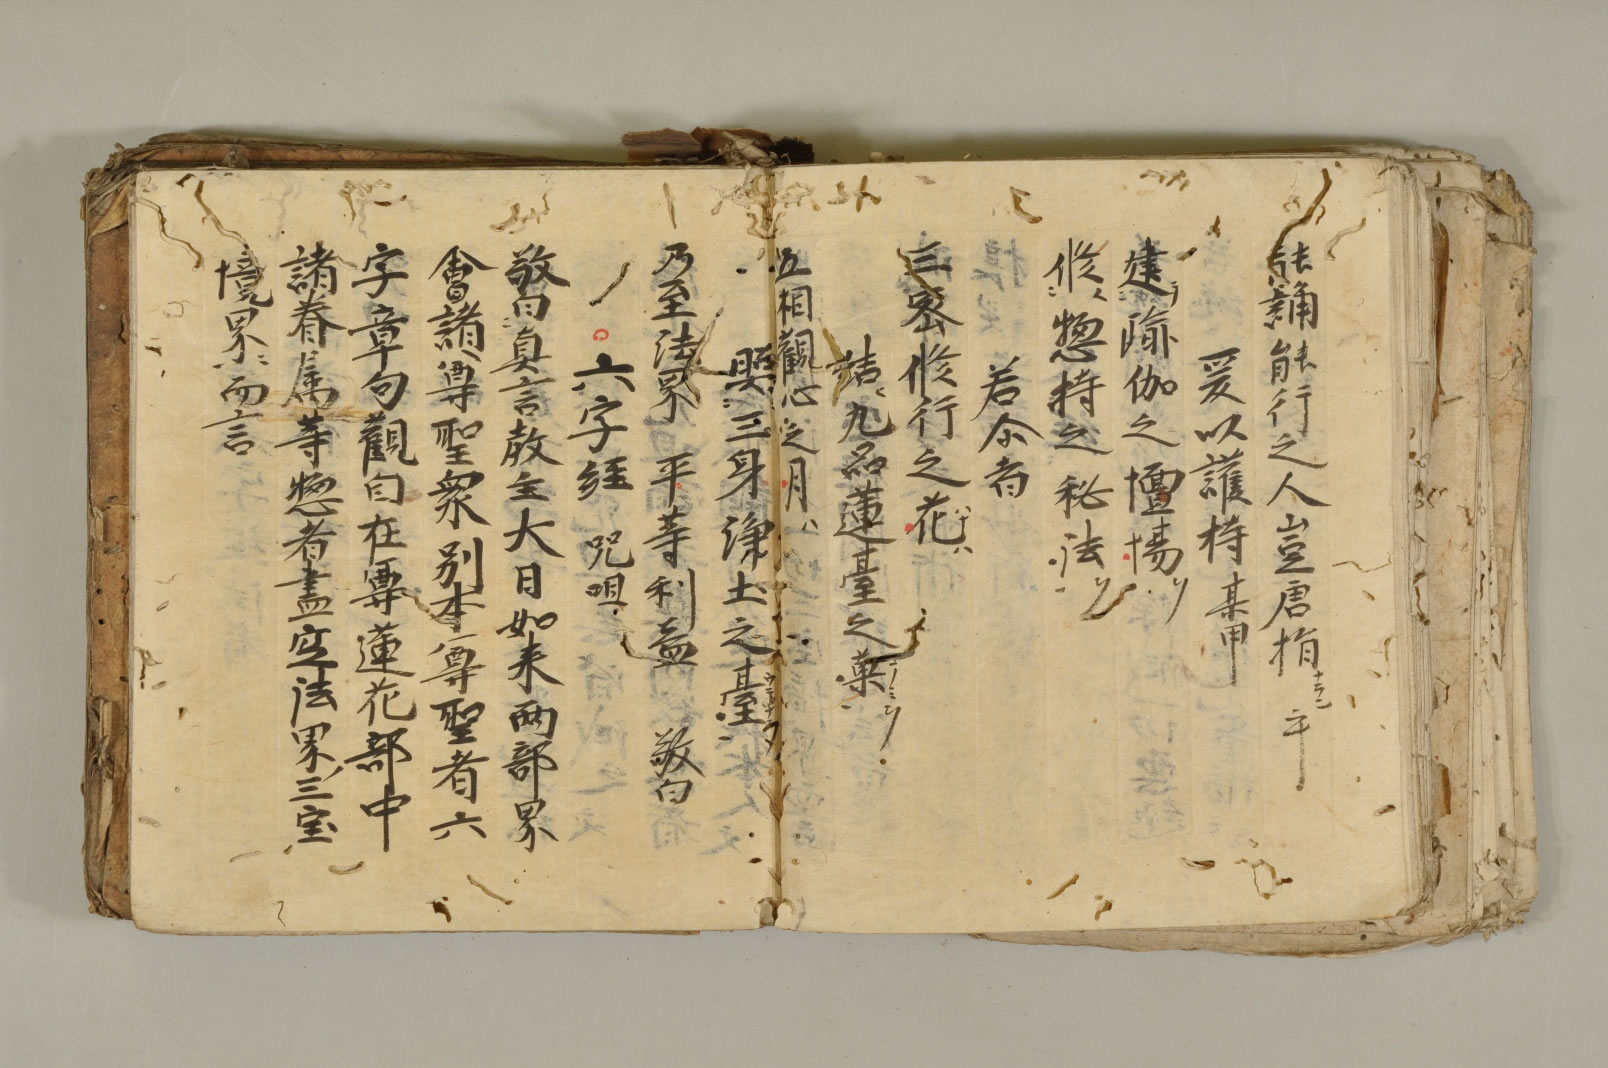 能誦能行之人豈唐捐
爰以護持某甲
建瑜伽之壇場
修惣持之秘法
若尒者
三密修行之花
結九品蓮臺之菓
五相觀心之月
照三身浄土之臺
乃至法界平等利益敬白
六字経 咒咀
敬白真言教主大日如来兩部界
會諸尊聖衆別本尊聖者六
字章句觀自在尊蓮花部中
諸眷属等惣者盡空法界三宝
境界而言